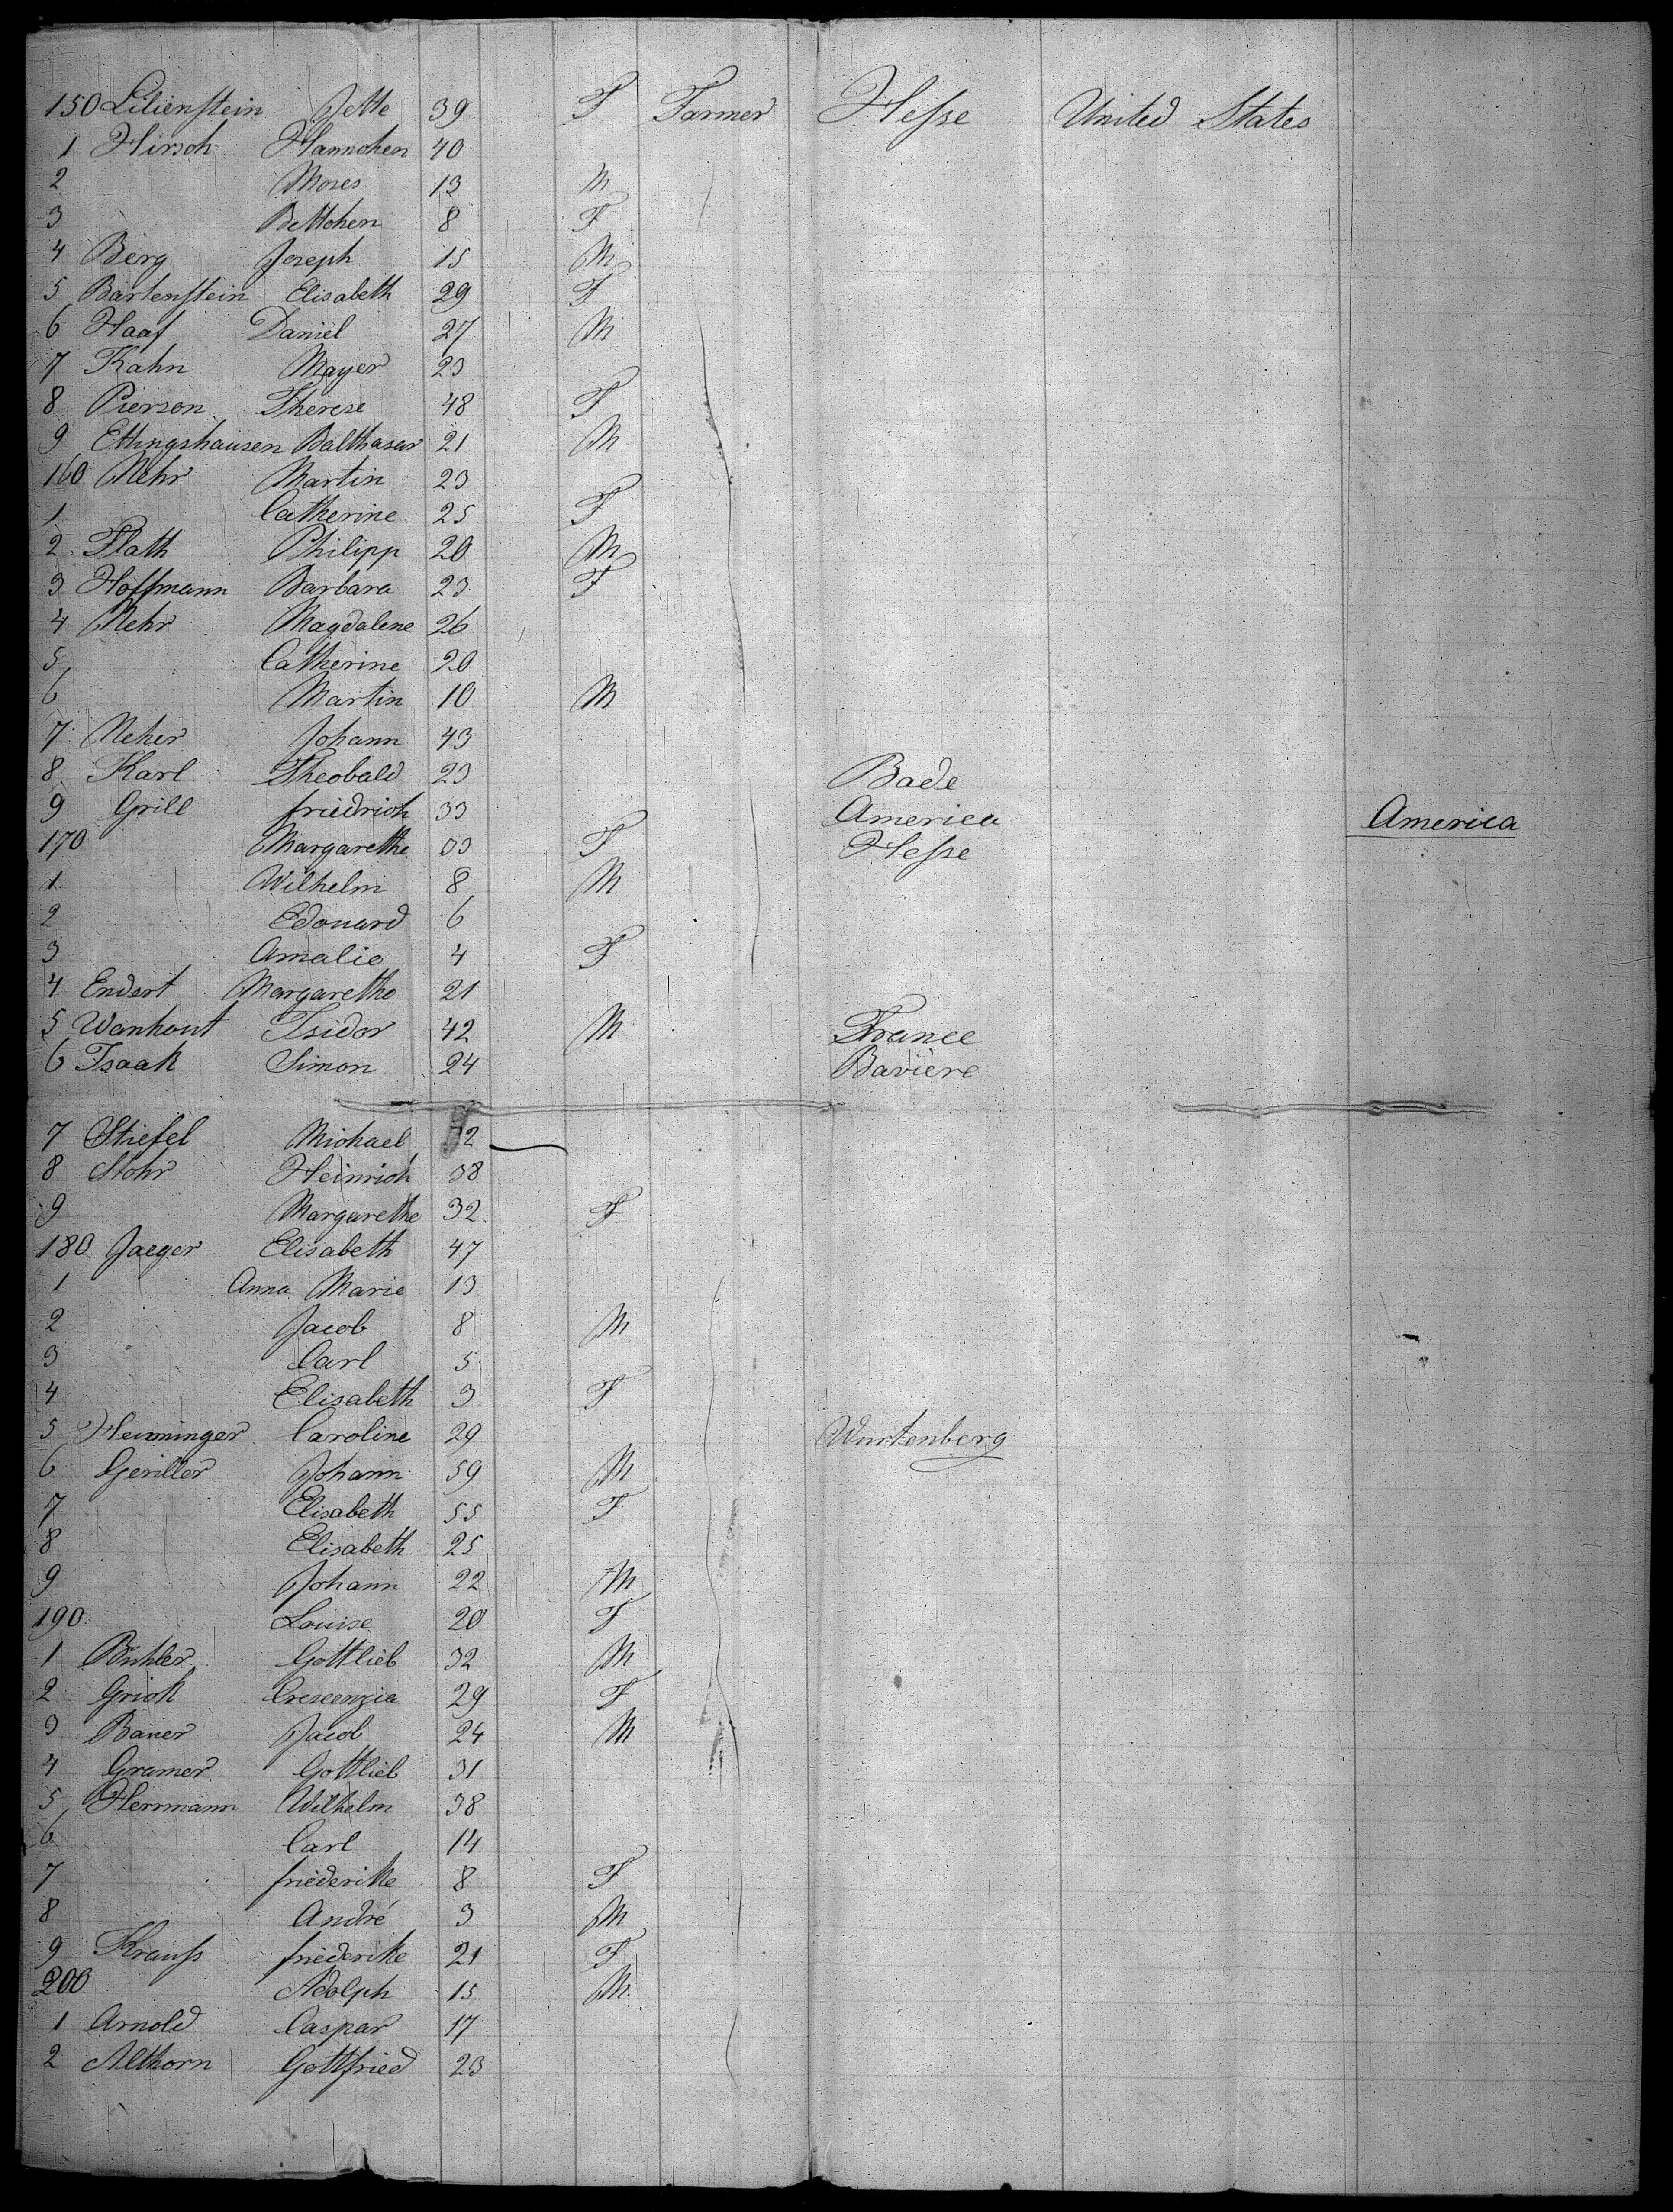 150 Lilienstein Jette 39 F Farmer Hesse United States
1 Hirsch Hannchen 40
2 Moses 13 M
3 Bettchen 8 F
4 Berg Joseph 15 M
5 Bartenstein Elisabeth 29 F
6 Haaf Daniel 27 M
7 Kahn Mayer 23
8 Pierson Therese 48 F
9 Ettingshausen Balthasar 21 M
160 Nehr Martin 23
1 Catherine 25 F
2 Flath Philipp 20 M
3 Hoffmann Barbara 23 F
4 Nehr Magdalene 26
5 Catherine 20
6 Martin 10 M
7 Neher Johann 43
8 Karl Theobald 23 Bade
9 Grill friedrich 33 America America
170 Margarethe 33 F Hesse
1 Wilhelm 8 M
2 Edouard 6
3 Amalie 4 F
4 Endert Margarethe 21
5 Wanhout Isidor 42 M France
6 Isaak Simon 24 Bavière
7 Stiefel Michael 2
8 Stohr Heinrich 38
9 Margarethe 32 F
180 Jaeger Elisabeth 47
1 Anna Marie 13
2 Jacob 8 M
3 Carl 5
4 Elisabeth 3 F
5 Henninger Caroline 29 Wurtenberg
6 Geriller Johann 59 M
7 Elisabeth 55 F
8 Elisabeth 25
9 Johann 22 M
190 Louise 20 F
1 Buhler Gottlieb 32 M
2 Grick Crescenzia 29 F
3 Bauer Jacob 24 M
4 Gramer Gottlieb 31
5 Herrmann Wilhelm 38
6 Carl 14
7 friederike 8 F
8 André 3 M
9 Krauss friederike 21 F
200 Adolph 15 M
1 Arnold Caspar 17
2 Althorn Gottfried 23